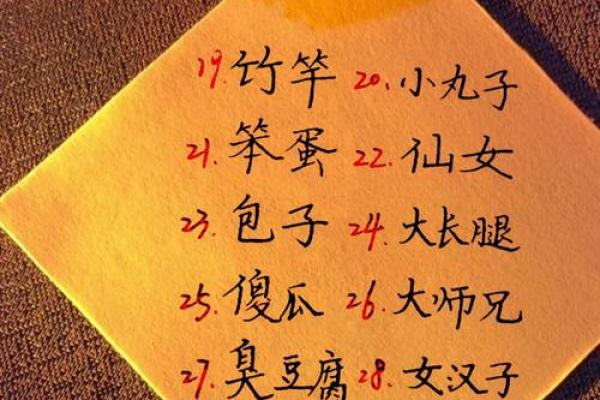 19. 竹竿 20. 小丸子
21. 笨蛋 22. 仙女
23. 包子 24. 大长腿
25. 傻瓜 26. 大师兄
27. 臭豆腐 28. 女汉子